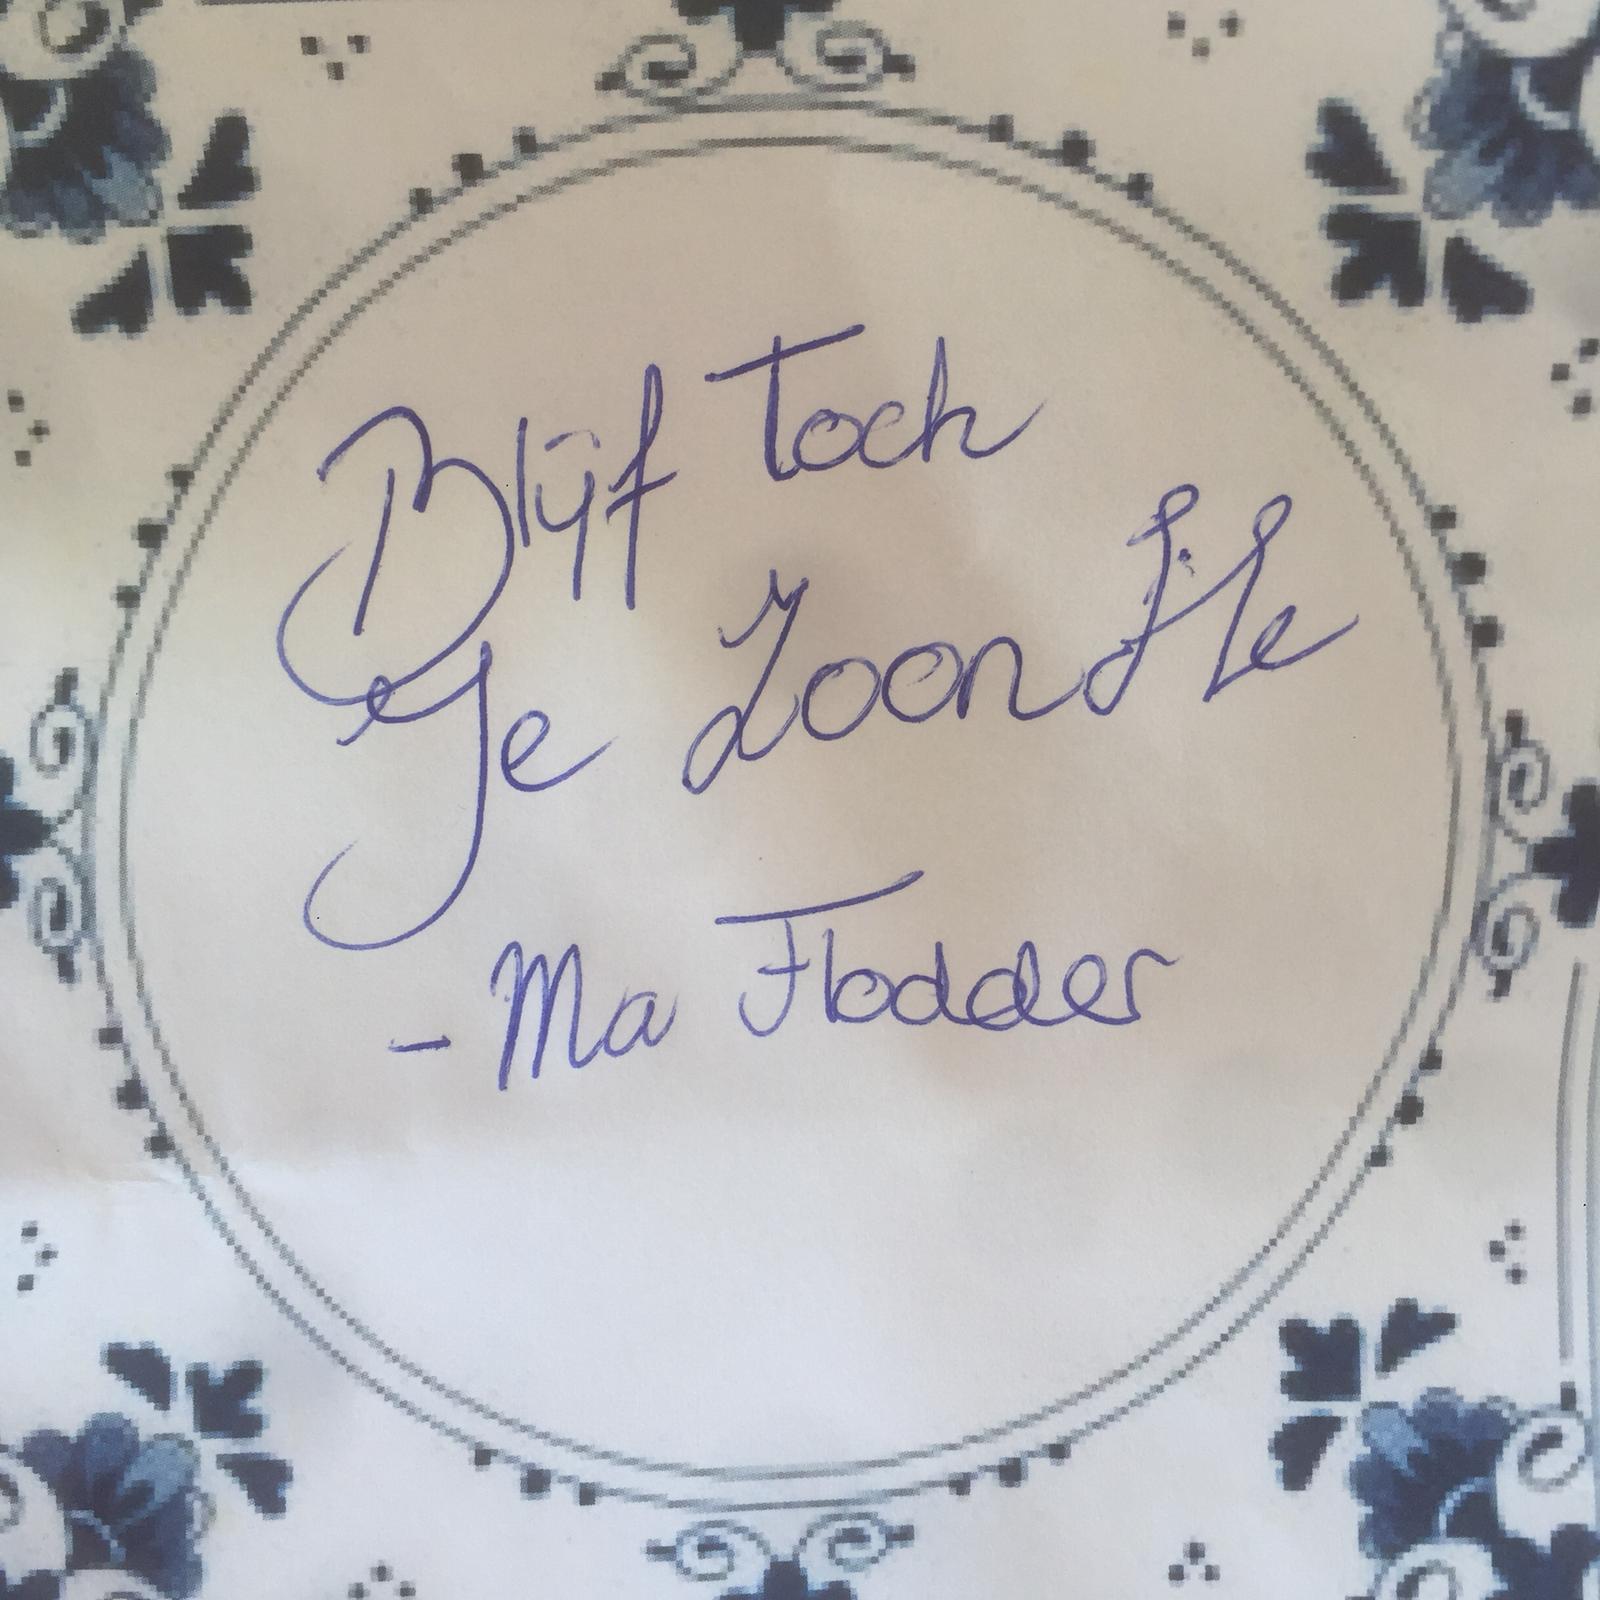 Blijf Toch
Je Zoon Hè
- Ma Flodder